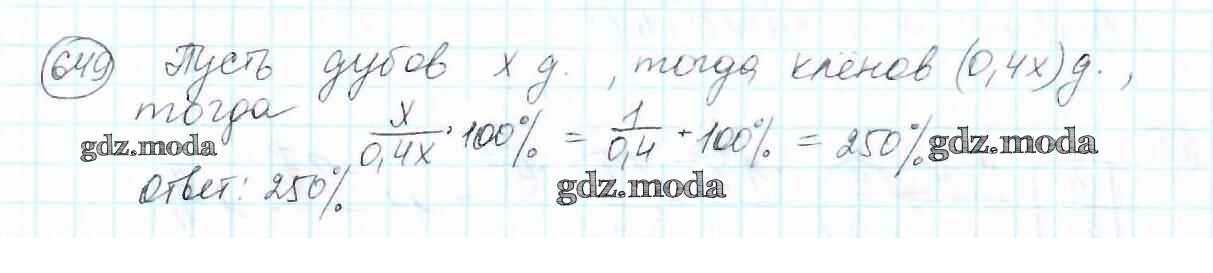 649 Пусть дубов x д. , тогда клёнов (0,4x) д. ,
тогда x/0,4x · 100% = 1/0,4 · 100% = 250%
gdz.moda gdz.moda
Ответ: 250%
gdz.moda